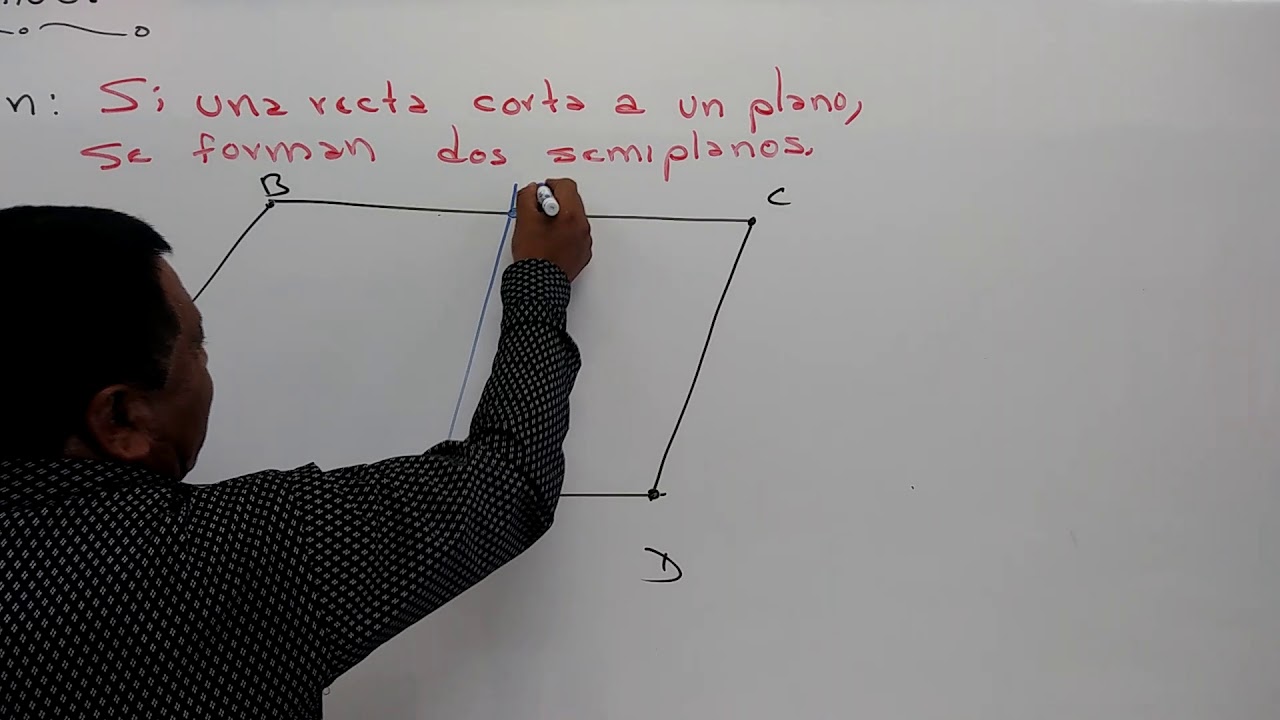 n: Si una recta corta a un plano,
se forman dos semiplanos.
B
C
D